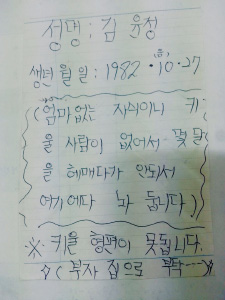 성명: 김 윤성
생년 월 일: 1982 · 10 · 27
(엄마 없는 자식이니 키
울 사람이 없어서 몇 달
을 헤매다가 안되서
여기에다 놔 둡니다)
※ 키울 형편이 못됩니다.
☆(부자 집으로 부탁